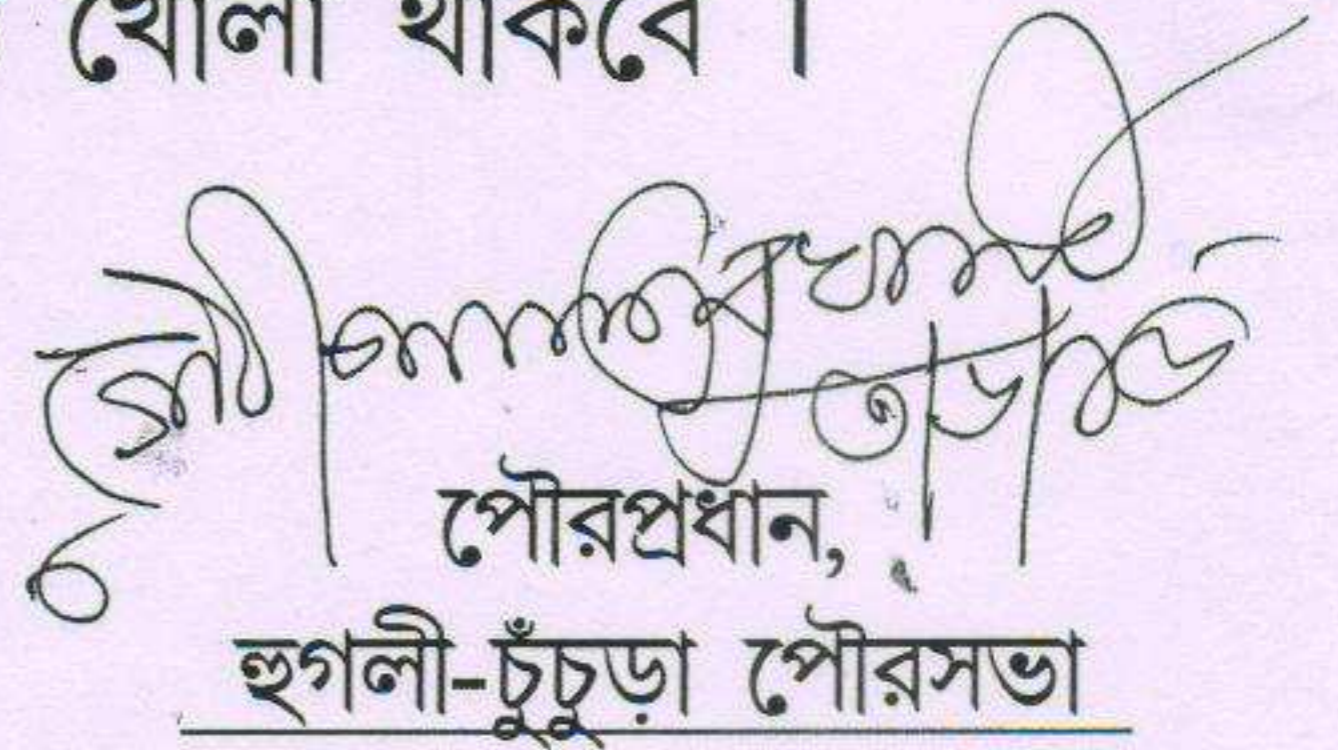 খোলা থাকবে ।
পৌরপ্রধান,
হুগলী-চুঁচুড়া পৌরসভা